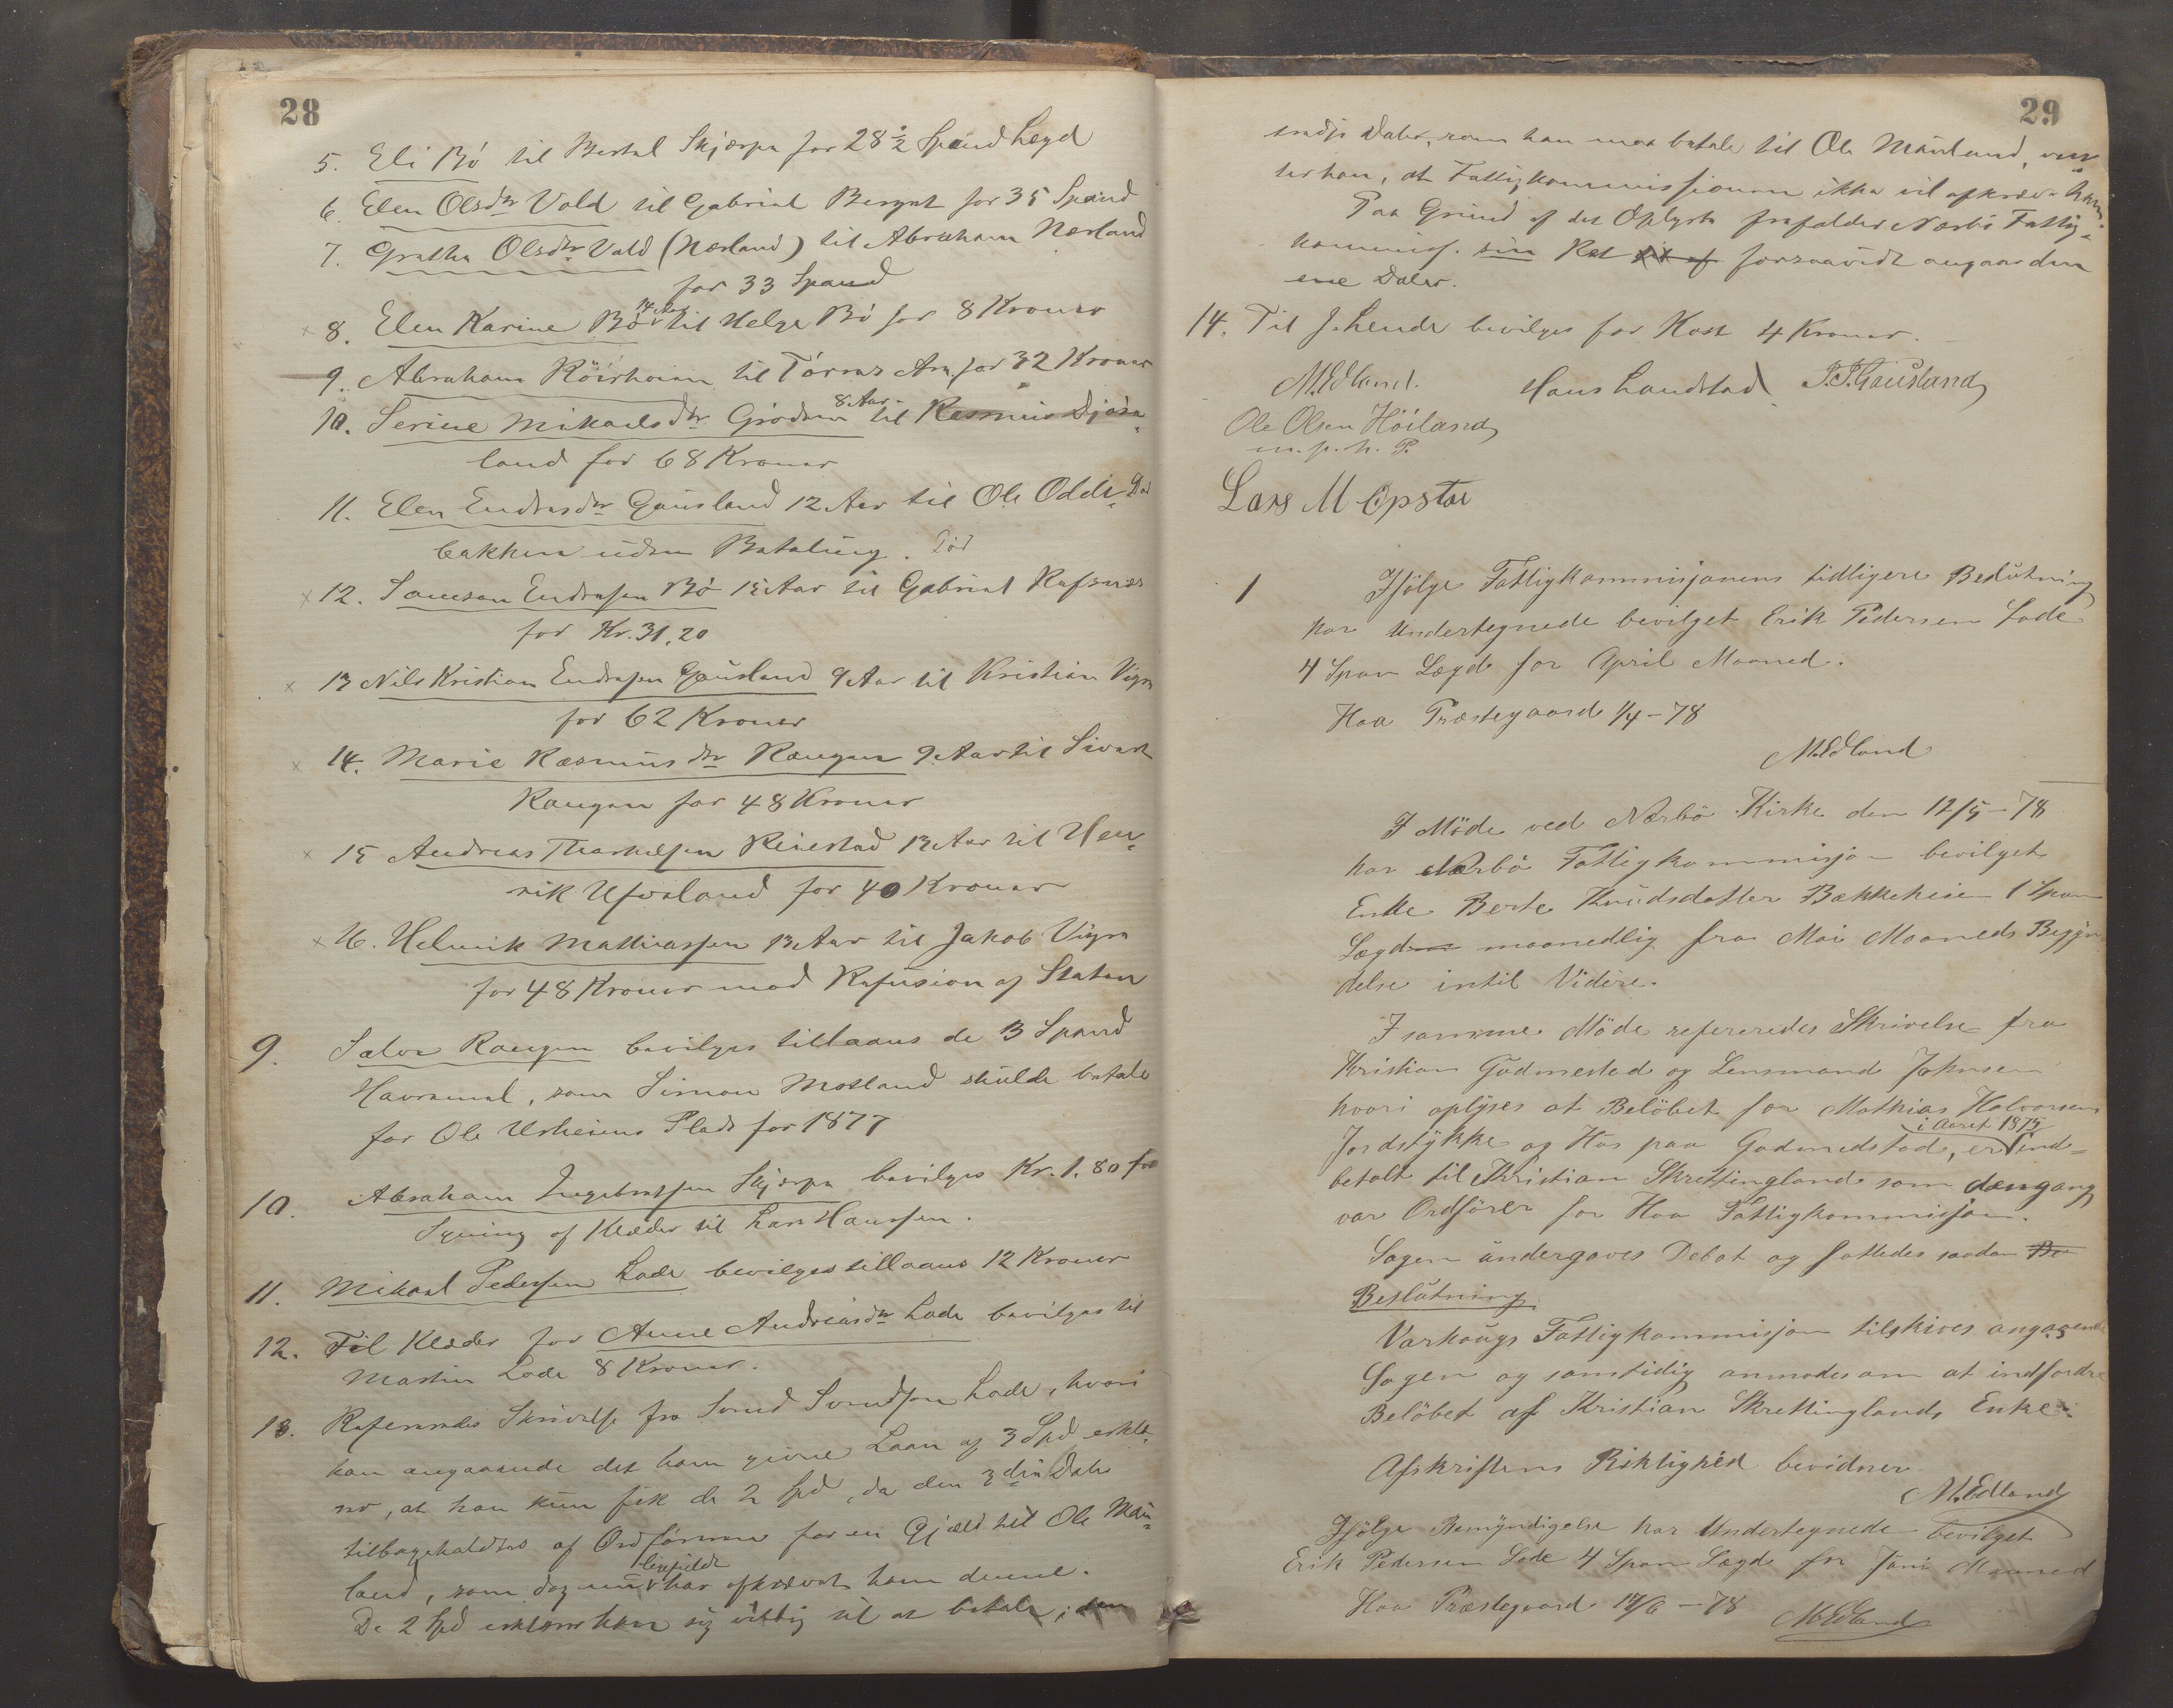 28
5. Eli Bö til Bertel Skjerpe for 28 1/2 Spand Lægd
6. Elen Olsdtr Vold til Gabriel Berget for 35 Spand
7. Grethe Olsdtr Vold (Nærland) til Abraham Nærland
for 33 Spand
8. Elen Karine Bö 14 Aar til Helge Bö for 8 Kroner
9. Abraham Röirheim til Törres Arn for 32 Kroner
10. Serine Mikaelsdtr Grödem 8 Aar til Rasmus
land for 68 Kroner
11. Elen Endresdtr Gausland 12 Aar til Ole Odde-
bakken uden Betaling. Död
12. Samson Endresen Bö 15 Aar til Gabriel Refsnes
for Kr. 31,20
13 Nils Kristian Endresen Gausland 9 Aar til Kristian Vigre
for 62 Kroner
14. Marie Rasmusdtr Raugen 9 Aar til Sivert
Raugen for 48 Kroner
15 Andreas Thorkelsen Reiestad 13 Aar til Hen-
rik Ufsaland for 40 Kroner
16. Helmik Mathiassen 13 Aar til Jakob Vigre
for 48 Kroner mod Refusion af Staten
9. Salve Raugen bevilges tillaans de 3 Spand
Havremel, som Simon Motland skulde betale
for Ole Urheiens Plads for 1877
10. Abraham Ingebretsen Skjerpe bevilges Kr. 1.80 for
Syning af Klæder til Lars Hanssen.
11. Mikael Pedersen Lode bevilges tillaans 12 Kroner
12. Til Klæder for Anne Andreasdtr Lode bevilges til
Martin Lode 8 Kroner.
13. Refereredes Skrivelse fra Svend Svendsen Lode, hvori
han angaaende det ham givne Laan af 3 Spd erklæ-
rer, at han kun fik de 2 Spd, da den 3die Daler
tilbageholdtes af Ordföreren for en Gjæld til Ole Mau-
land, som dog nu ligefuldt har afkrævet ham denne.
De 2 Spd erklærer han sig villig til at betale; den
29
tredje Daler, som han maa betale til Ole Mauland, ven-
ter han, at Fattigkommissionen ikke vil afkræve ham.
Paa Grund af det Oplyste frafalder Nærbö Fattig-
kommiss. sin Ret forsaavidt angaar den
ene Daler.
14. Til J. Lende bevilges for Kost 4 Kroner.
M. Edland. Hans Landstad J. J. Gausland
Ole Olsen Höiland
m. p. h. P.
Lars M Opstae
1 Ifölge Fattigkommisjonens tidligere Beslutning
har Undertegnede bevilget Erik Pedersen Lode
4 Span Lægd for April Maaned.
Haa Præstegaard 1/4 - 78
M. Edland
I Möde ved Nærbö Kirke den 12/5 - 78
har Nærbö Fattigkommisjon bevilget
Enke Berte Knudsdatter Bakkeheien 1 Span
Lægd maanedlig fra Mai Maaneds Begyn
delse intil Videre.
I samme Möde refereredes Skrivelse fra
Kristian Gudmestad og Lensmand Johnsen
hvori oplyses at Belöbet for Mathias Halvorsens
Jordstykke og Hus paa Godmedstad, er i Aaret 1875 ind-
betalt til Khristian Skrettingland som dengang
var Ordförer for Haa Fattigkommisjon.
Sagen undergaves Debat og fattedes saadan Be
Beslutning
Varhaugs Fattigkommisjon tilskives angaaende
Sagen og samtidig anmodes om at indfordre
Belöbet af Khristian Skrettinglands Enke.
Afskriftens Riktighed bevidner
M. Edland
Ifölge Bemyndigelse har Undertegnede bevilget
Erik Pedersen Lode 4 Span Lægd for Juni Maaned
Haa Præstegaard 14/6 - 78 M. Edland